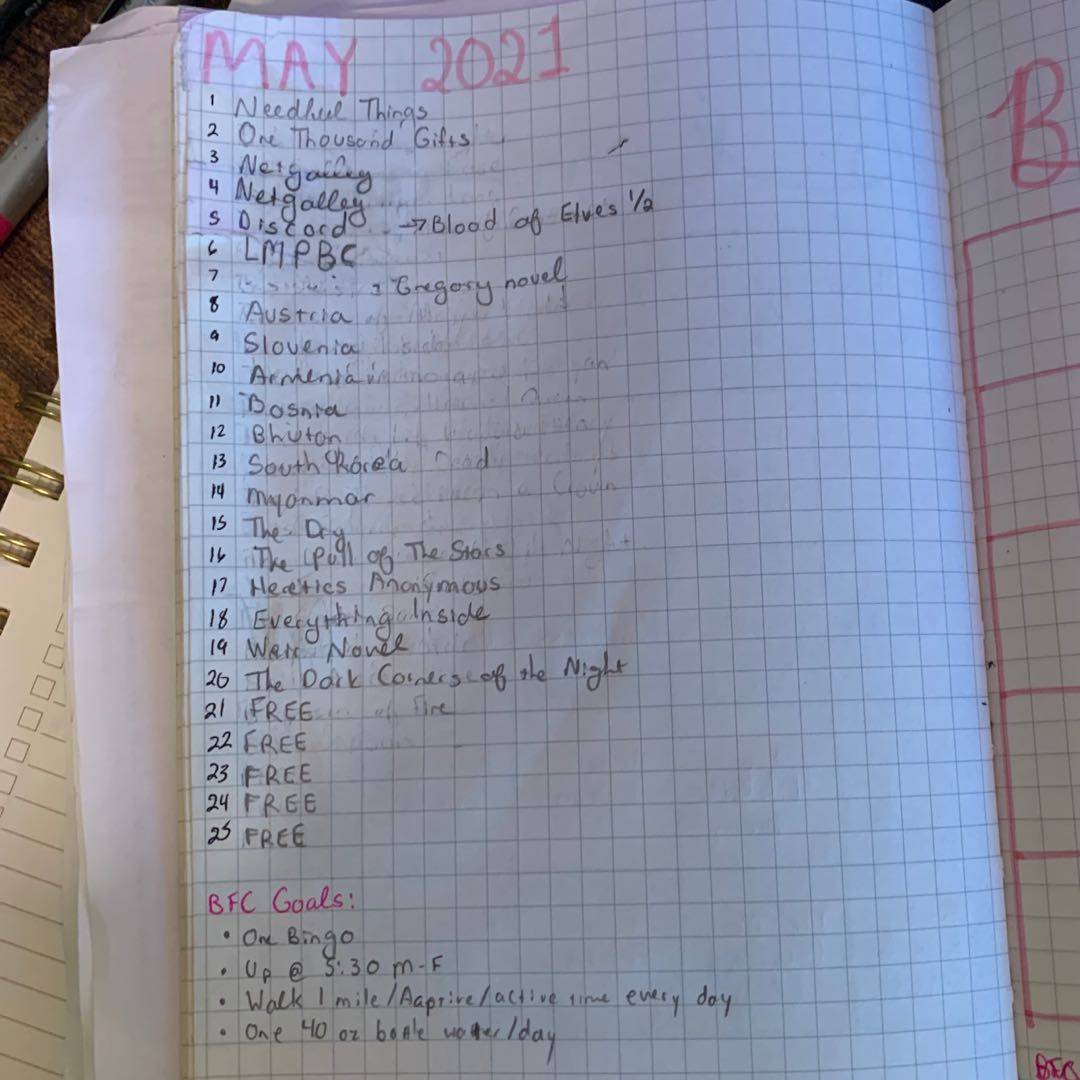 MAY 2021
1 Needful Things
2 One Thousand Gifts
3 Netgalley
4 Netgalley
5 Discord → Blood of Elves 1/2
6 LMPBC
7 Gregory novel
8 Austria
9 Slovenia
10 Armenia
11 Bosnia
12 Bhuton
13 South Korea
14 Myanmar
15 The Dry
16 The Pull of The Stars
17 Heretics Anonymous
18 Everything Inside
19 Novel
20 The Dark Corners of the Night
21 FREE
22 FREE
23 FREE
24 FREE
25 FREE
BFC Goals:
• One Bingo
• Up @ 5:30 M-F
• Walk 1 mile/Aaptive/active time every day
• One 40 oz bottle water/day
B
BFC